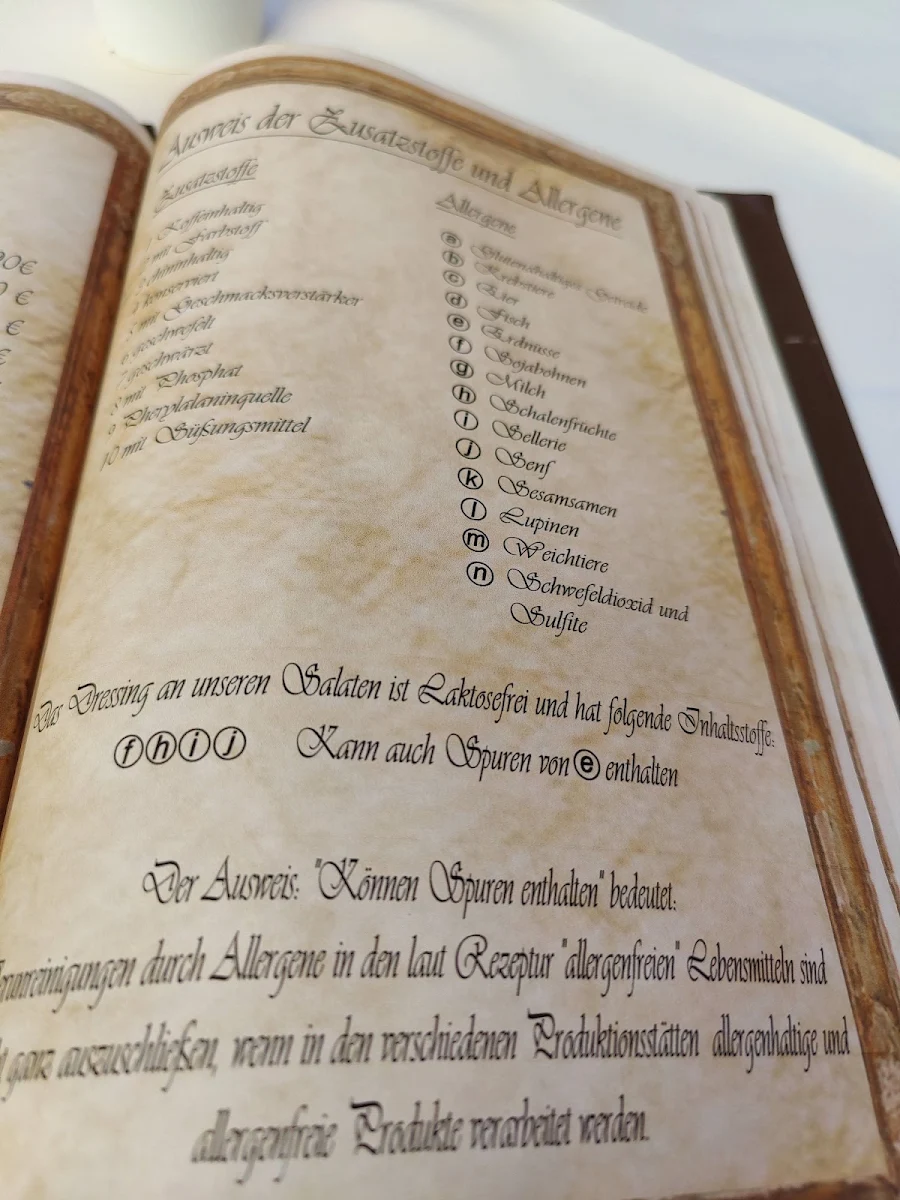 90€
0 €
€
€
Ausweis der Zusatzstoffe und Allergene
Zusatzstoffe
1 Koffeinhaltig
2 mit Farbstoff
3 chininhaltig
4 konserviert
5 mit Geschmacksverstärker
6 geschwefelt
7 geschwärzt
8 mit Phosphat
9 Phenylalaninquelle
10 mit Süßungsmittel
Allergene
a Glutenhaltiges Getreide
b Krebstiere
c Eier
d Fisch
e Erdnüsse
f Sojabohnen
g Milch
h Schalenfrüchte
i Sellerie
j Senf
k Sesamsamen
l Lupinen
m Weichtiere
n Schwefeldioxid und
Sulfite
Das Dressing an unseren Salaten ist Laktosefrei und hat folgende Inhaltsstoffe:
f h i j Kann auch Spuren von e enthalten
Der Ausweis: "Können Spuren enthalten" bedeutet:
runreinigungen durch Allergene in den laut Rezeptur "allergenfreien" Lebensmitteln sind
t ganz auszuschließen, wenn in den verschiedenen Produktionsstätten allergenhaltige und
allergenfreie Produkte verarbeitet werden.